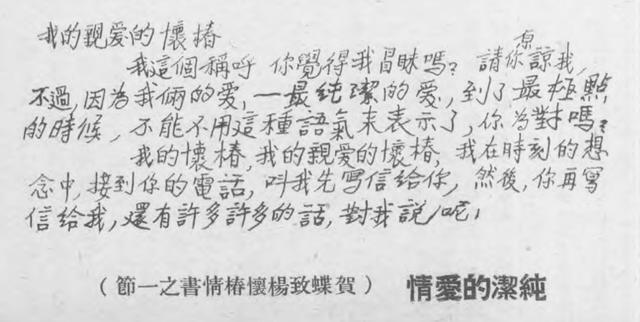 我的親爱的懷椿
我這個稱呼 你覺得我冒昧嗎？ 請你原諒我，
不過，因為我倆的爱，—最純潔的爱，到了最極點
的時候，不能不用這種語氣来表示了，你為對嗎？
我的懷椿，我的親爱的懷椿，我在時刻的想
念中，接到你的電話，叫我先寫信給你，然後，你再寫
信給我，還有許多許多的話，對我說呢，
純潔的愛情
（賀蝶致楊懷椿情書之一節）